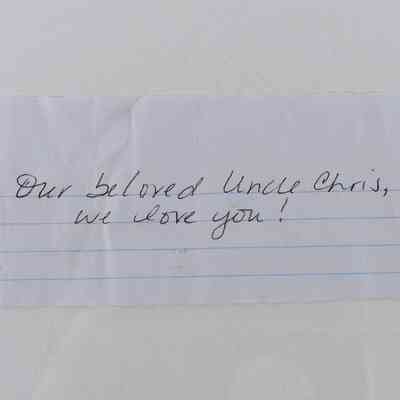 Our beloved Uncle Chris,
we love you!